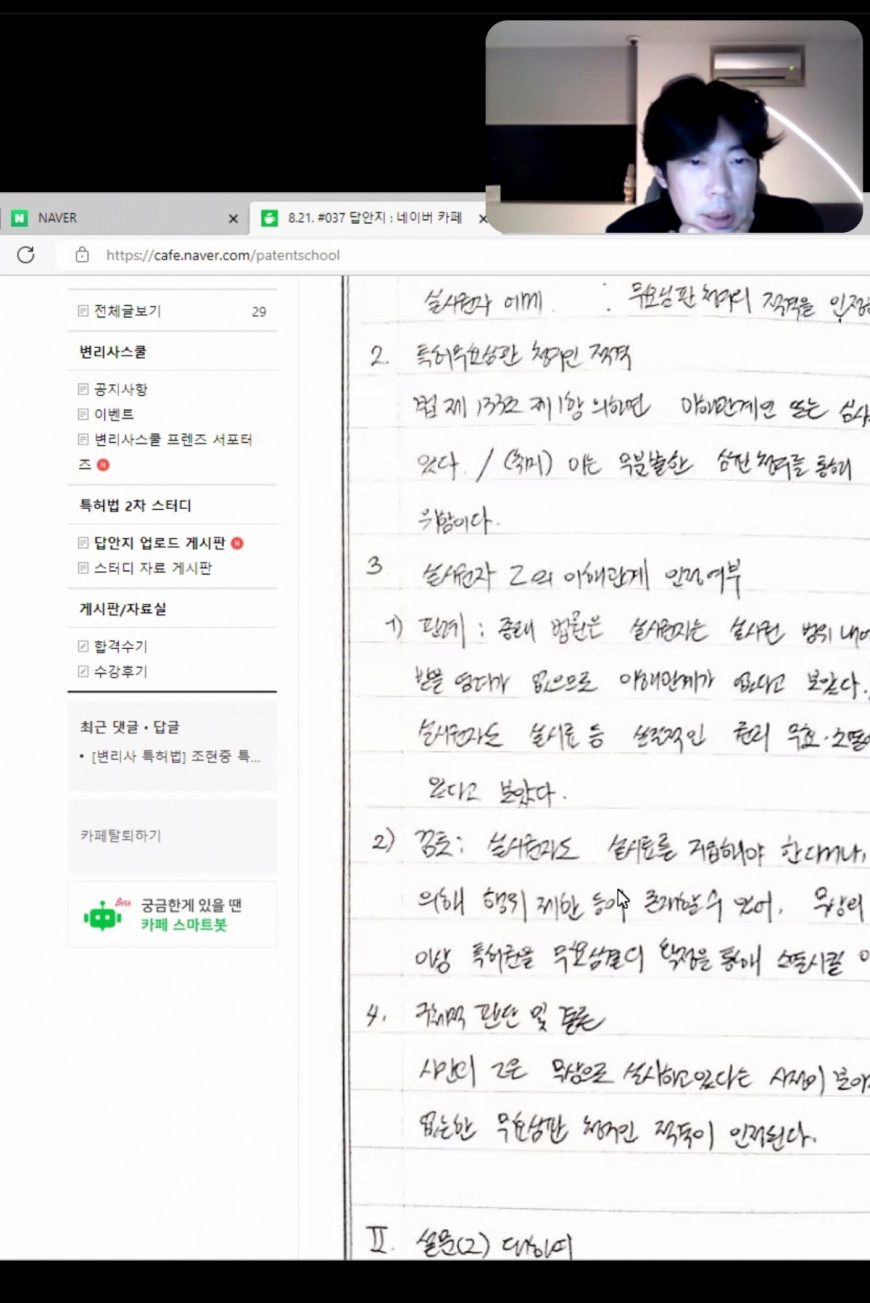 NAVER
8.21. #037 답안지 : 네이버 카페
https://cafe.naver.com/patentschool
전체글보기 29
변리사스쿨
공지사항
이벤트
변리사스쿨 프렌즈 서포터
즈 N
특허법 2차 스터디
답안지 업로드 게시판 N
스터디 자료 게시판
게시판/자료실
합격수기
수강후기
최근 댓글 • 답글
• [변리사 특허법] 조현중 특...
카페탈퇴하기
Beta 궁금한게 있을 땐
카페 스마트봇
실시권자 에게 : 무효심판 청구의 적격을 인정
2. 특허무효심판 청구인 적격
법 제133조 제1항 의하면 이해관계인 또는 심사
있다. / (취지) 이는 무분별한 심판청구를 통해
위함이다.
3. 실시권자 乙의 이해관계 인정여부
1) 판례 : 종래 법원은 실시권자는 실시권 범위 내에
받을 염려가 없으므로 이해관계가 없다고 보았다.
실시권자도 실시료 등 실질적인 권리 무효·소멸
있다고 보았다.
2) 검토 : 실시권자도 실시료를 지급해야 한다거나,
의해 행위 제한 등이 존재할 수 있어, 무상의
이상 특허권을 무효심결의 확정을 통해 소멸시킬 이
4. 구체적 판단 및 결론
사안의 乙은 무상으로 실시하고 있다는 사정이 보이
없는한 무효심판 청구인 적격이 인정된다.
II. 설문(2) 대하여